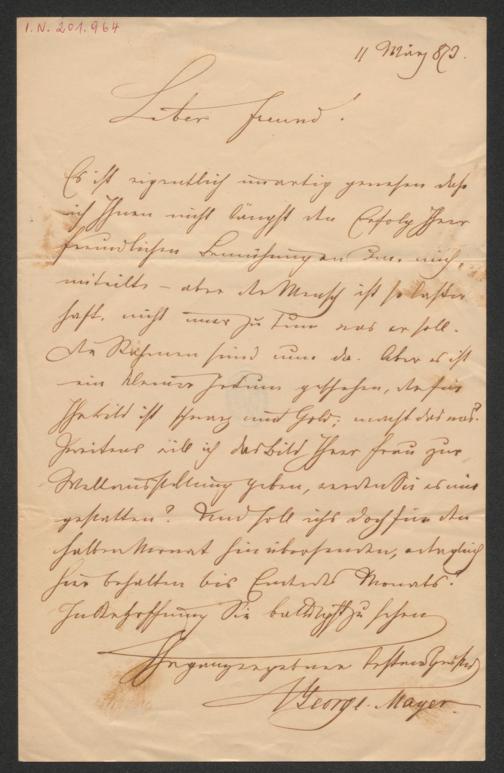 I.N. 201.964
11 März 873.
Lieber Freund!
Es ist eigentlich unartig gewesen daß
ich Ihnen nicht längst den Erfolg Ihrer
freundlichen Bemühungen um mich
mitteilte – aber der Mensch ist so laster
haft, nicht immer zu tun was er soll.
Die Rahmen sind nun da. Aber es ist
ein kleiner Irrtum geschehen, der für
Ihr Bild ist schwarz und Gold; macht das was?
Zweitens will ich das Bild Ihrer Frau zur
Weltausstellung geben, werden Sie es mir
gestatten? Und soll ichs doch für den
halben Monat hinübersenden, oder gleich
hier behalten bis Ende des Monats?
In der Hoffnung Sie baldigst zu sehen
Ihr ganz ergebener
George Mayer